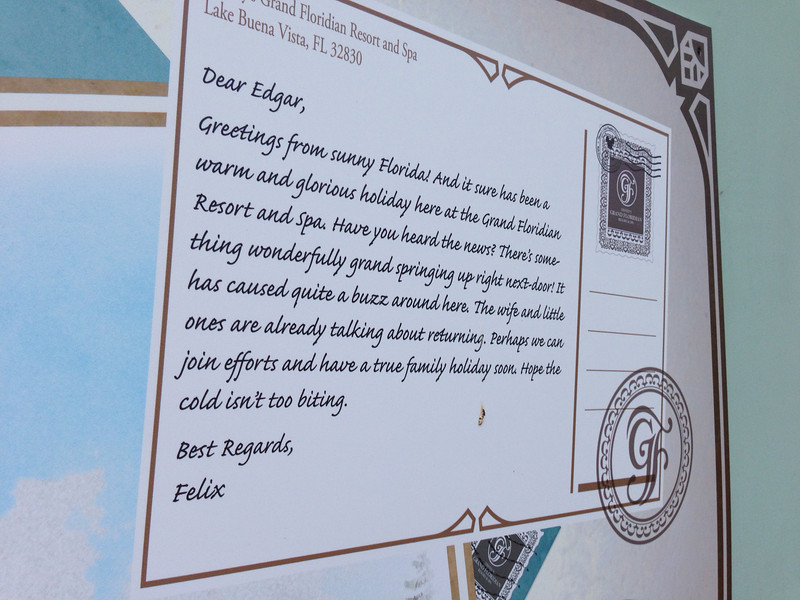 Grand Floridian Resort and Spa
Lake Buena Vista, FL 32830
Dear Edgar,
Greetings from sunny Florida! And it sure has been a
warm and glorious holiday here at the Grand Floridian
Resort and Spa. Have you heard the news? There's some-
thing wonderfully grand springing up right next-door! It
has caused quite a buzz around here. The wife and little
ones are already talking about returning. Perhaps we can
join efforts and have a true family holiday soon. Hope the
cold isn't too biting.
Best Regards,
Felix
GF
GRAND FLORIDIAN
GF